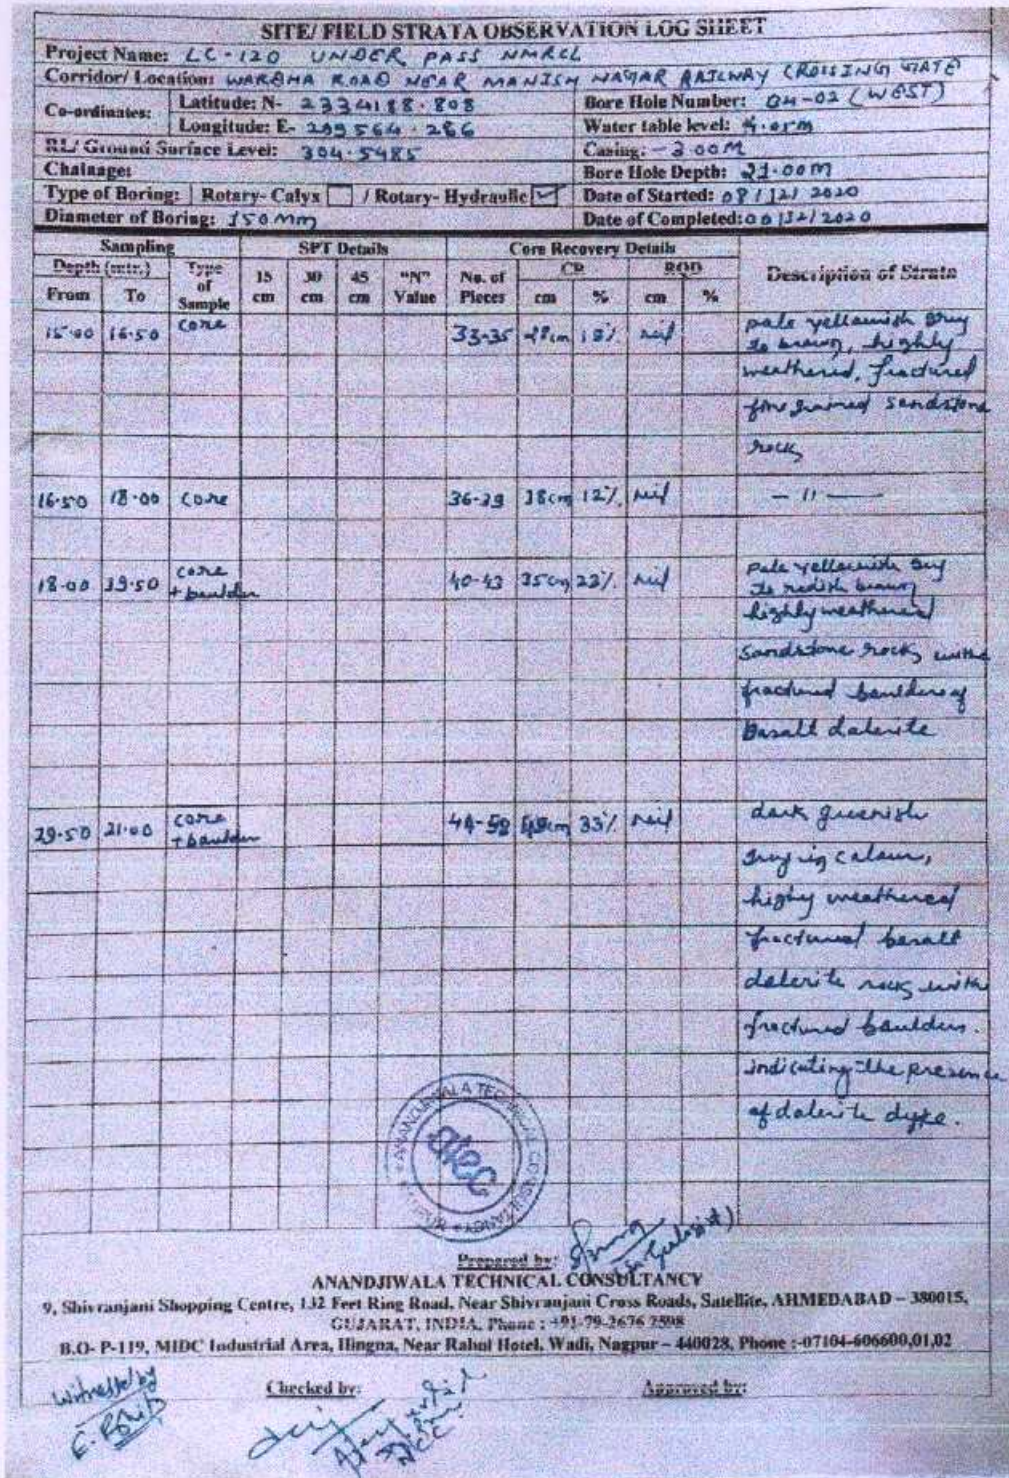 SITE/ FIELD STRATA OBSERVATION LOG SHEET
Project Name: LC-120 UNDER PASS NMRCL
Corridor/ Location: WARDHA ROAD NEAR MANISH NAGAR RAILWAY CROSSING GATE
Co-ordinates: Latitude: N- 2334188.808 Bore Hole Number: BH-02 (WEST)
Longitude: E- 299564.266 Water table level:
RL/ Ground Surface Level: 304.5485 Casing: - 3.00M
Chainage: Bore Hole Depth: 21.00M
Type of Boring: Rotary- Calyx / Rotary- Hydraulic Date of Started: 08/12/2020
Diameter of Boring: 150mm Date of Completed:
Sampling SPT Details Core Recovery Details Description of Strata
Depth (mtr.) Type of Sample 15 cm 30 cm 45 cm "N" Value No. of Pieces CR RQD
From To cm % cm %
15.00 16.50 core 33-35 18% nil pale yellowish grey
to brown, highly
weathered, fractured
fine grained sandstone
rock
16.50 18.00 core 36-39 18cm 12% nil — 11 —
18.00 19.50 core + boulder 40-43 35cm 23% nil pale yellowish
to redish brown
highly weathered
sandstone rock with
fractured boulders of
basalt dalerite
19.50 21.00 core + boulder 33% nil dark greenish
gray in colour,
highy weathered
fractured basalt
dalerite rock with
fractured boulders.
indicating the presence
of dalerite dyke.
ANANDJIWALA TECHNICAL CONSULTANCY
atec
Prepared by:
ANANDJIWALA TECHNICAL CONSULTANCY
9, Shivranjani Shopping Centre, 132 Feet Ring Road, Near Shivranjani Cross Roads, Satellite, AHMEDABAD – 380015,
GUJARAT, INDIA, Phone : +91-79-2676 2598
B.O- P-119, MIDC Industrial Area, Hingna, Near Rahul Hotel, Wadi, Nagpur – 440028, Phone :-07104-606600,01,02
Witnessed by
Checked by: Approved by:
NCC